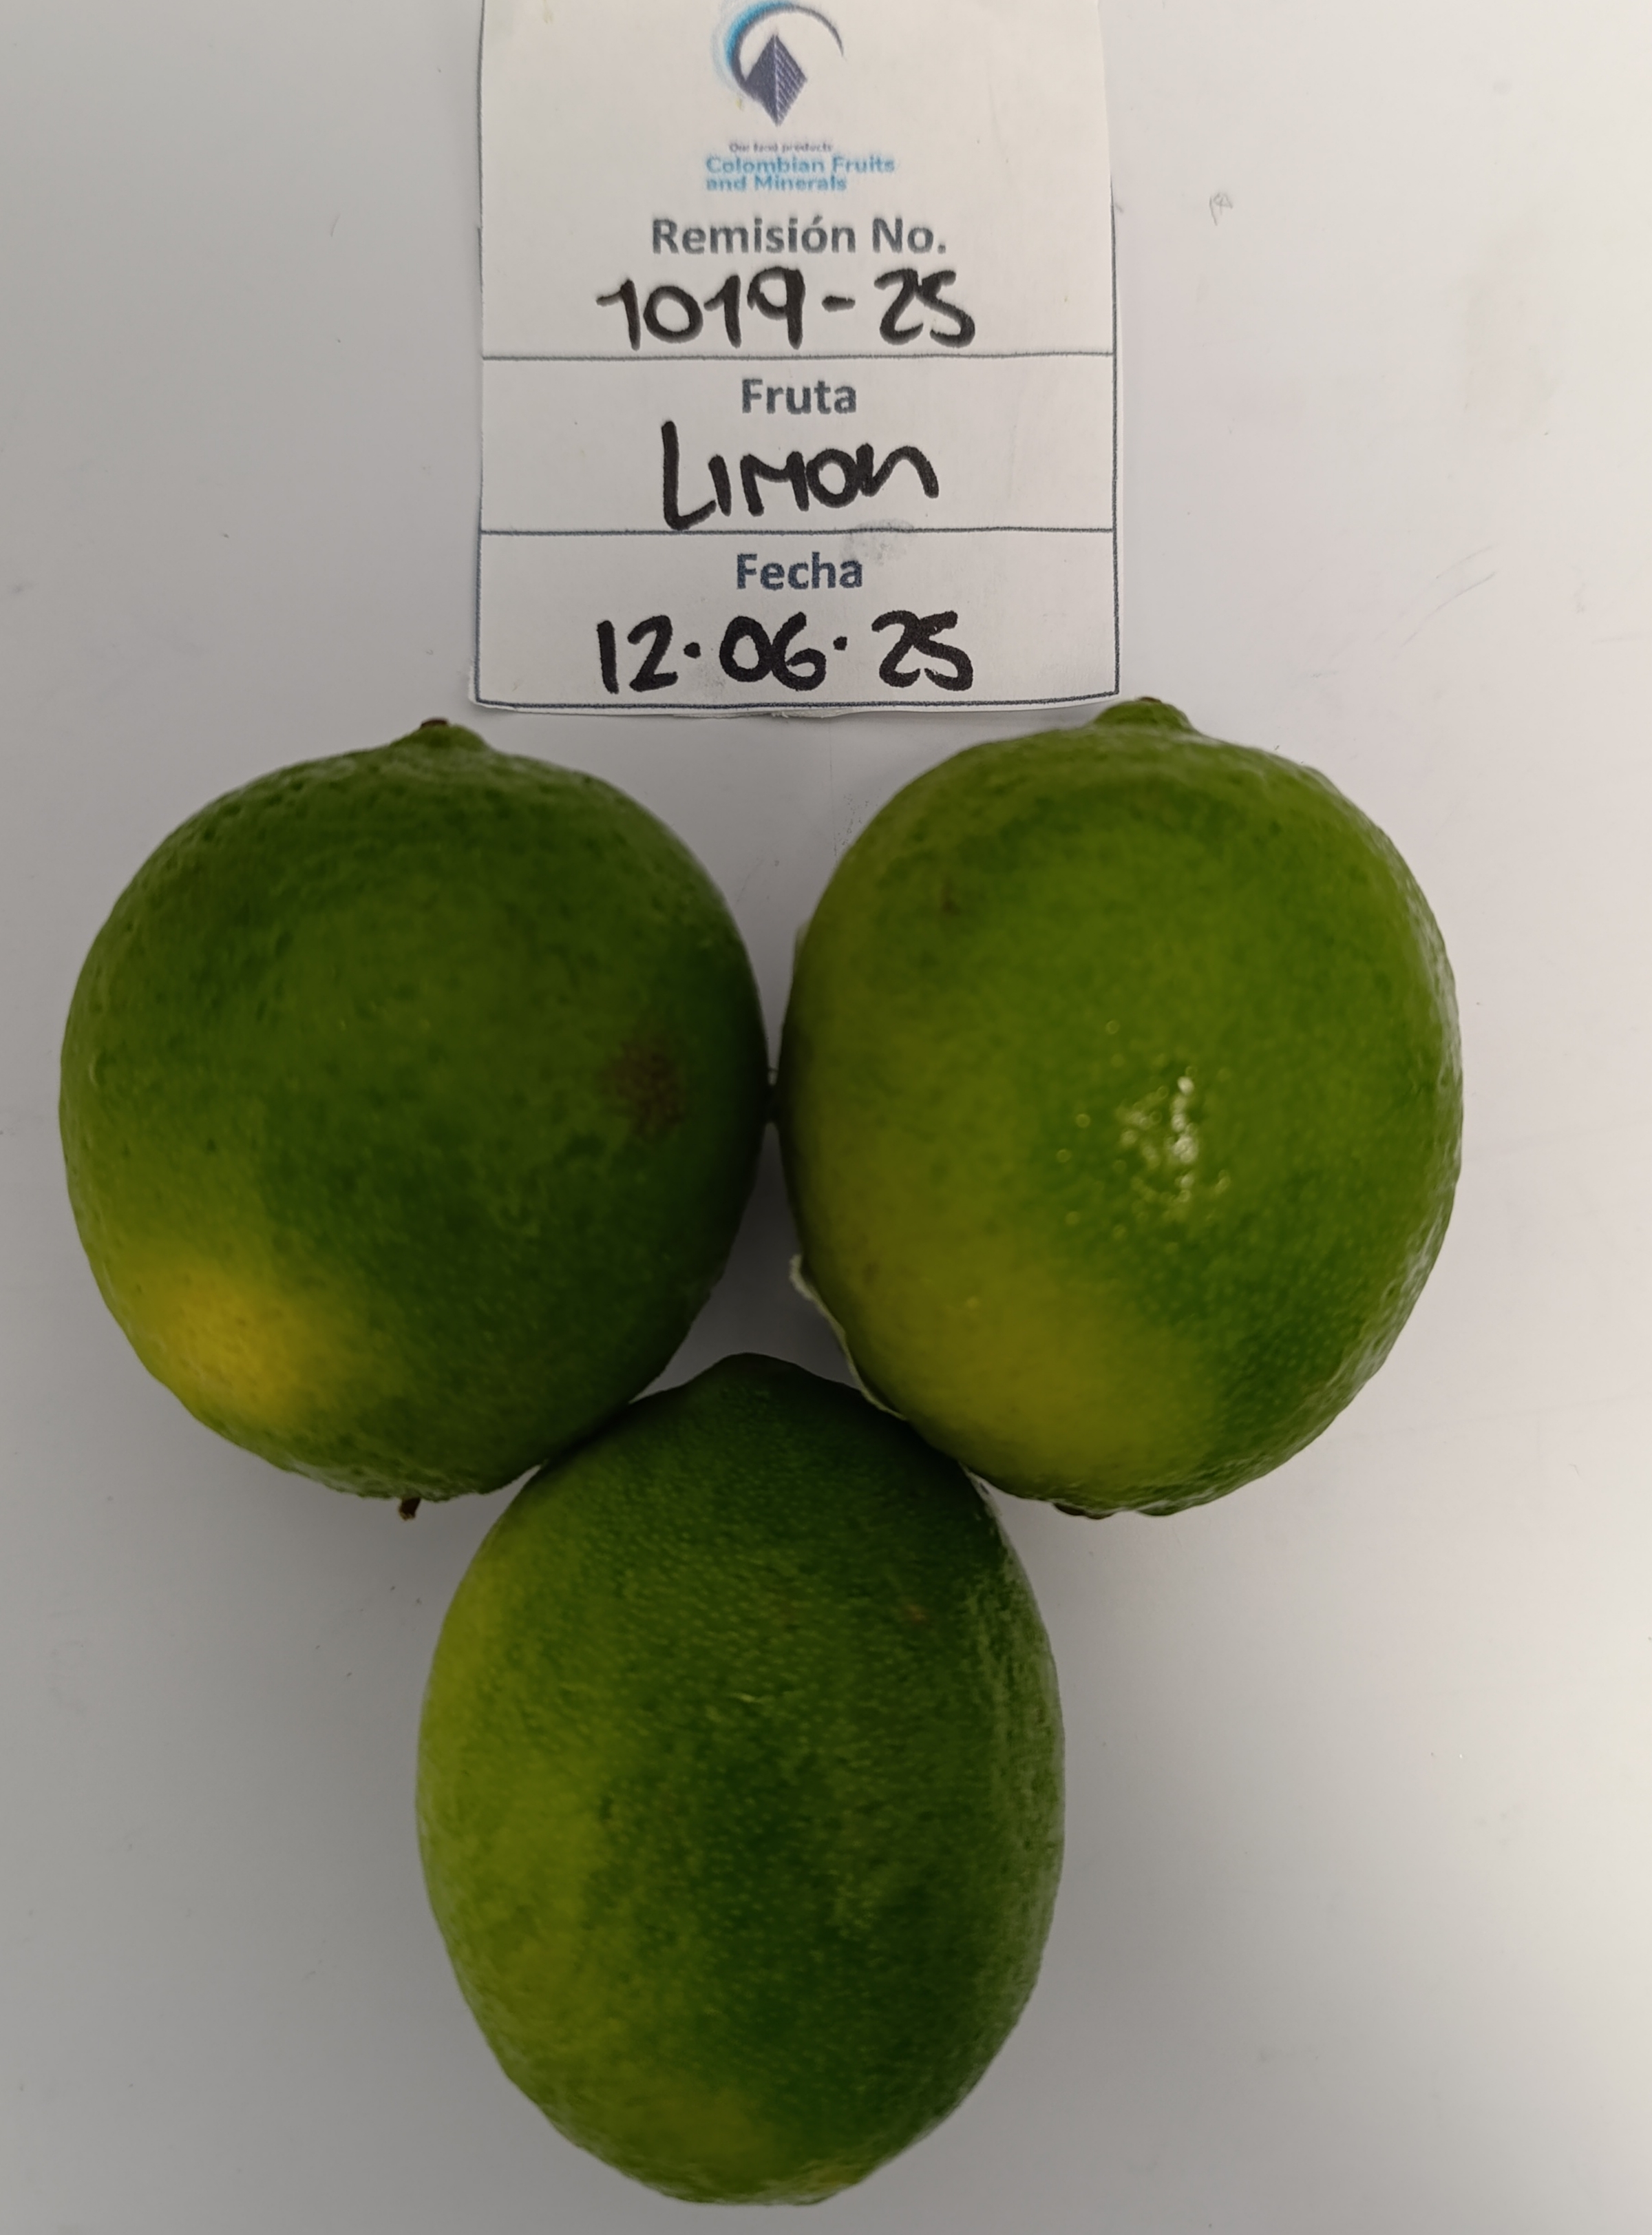 Our food products
Colombian Fruits
and Minerals
Remisión No.
1019-25
Fruta
LIMON
Fecha
12.06.25